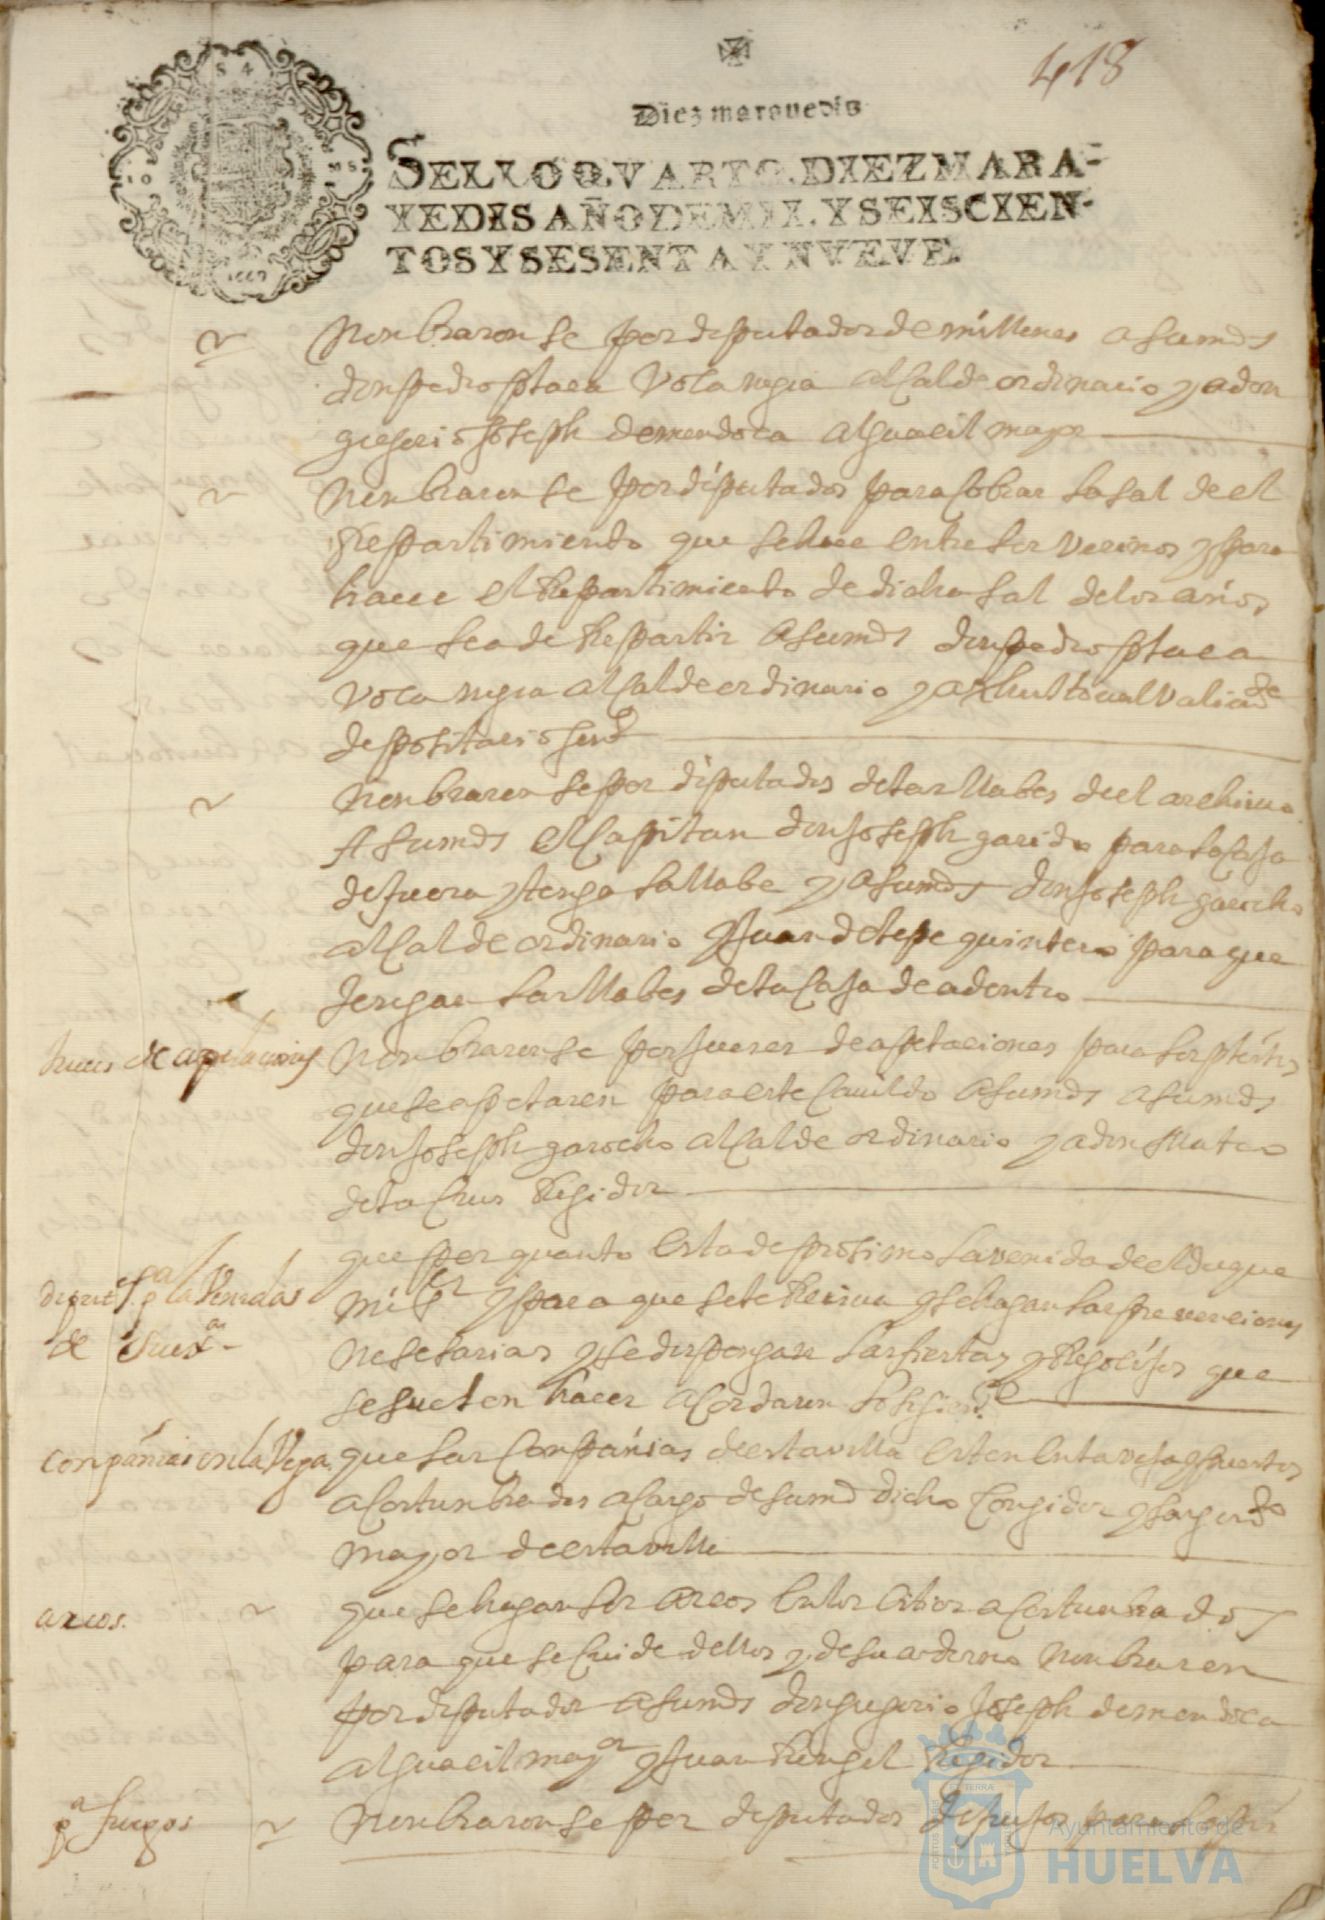 418
Diez marauedis
SELLO QVARTO, DIEZ MARA-
VEDIS AÑO DE MIL Y SEISCIEN-
TOS Y SESENTA Y NVEVE.
1669
Nonbraronse por diputados de millones a sumds
don pedro alcalde ordinario y a don
gregorio Joseph de mendoca alguacil mayor
Nonbraronse por diputados para cobrar la sal de el
Repartimiento que se hace entre los vecinos y para
hacer el Repartimiento de dicha sal de los años
que sea de Repartir a sumds don pedro
alcalde ordinario y a
depositario genl
Nonbraronse por diputados de las llabes de el archivo
A sumds el Capitan don Joseph garido para la caja
de fuera y tenga la llabe y a sumds don Joseph garocho
alcalde ordinario y Juan de lepe quintero para que
tengan las llabes de la caja de adentro
Jueces de apelaciones
Nonbraronse por Jueces de apelaciones para los pleitos
que se apelaren para este Cauildo a sumds a sumds
don Joseph garocho alcalde ordinario y a don Mateo
de la Crus Regidor
diput.s pa la Venida
de su exa
que por quanto esta de proximo la venida de el duque
mi sr y para que se le Reciua y se hagan las prevenciones
nesesarias y se dispongan las fiestas y Regosijos que
se suelen hacer acordaron lo sigiente
conpañias en la Vega
que las Conpañias de esta villa esten en la vega y puertos
acostunbrados a cargo de sumd dicho Coregidor y sargento
mayor de esta villa
arcos.
que se hagan los arcos en los citios acostunbrados
para que se cuide dellos y de su adorno nonbraron
por diputados a sumds don gregorio Joseph de mendoca
alguacil mayor y Juan Rengel Regidor
pa fuegos
Nonbraronse por diputados de fuegos para
Ayuntamiento de
HUELVA